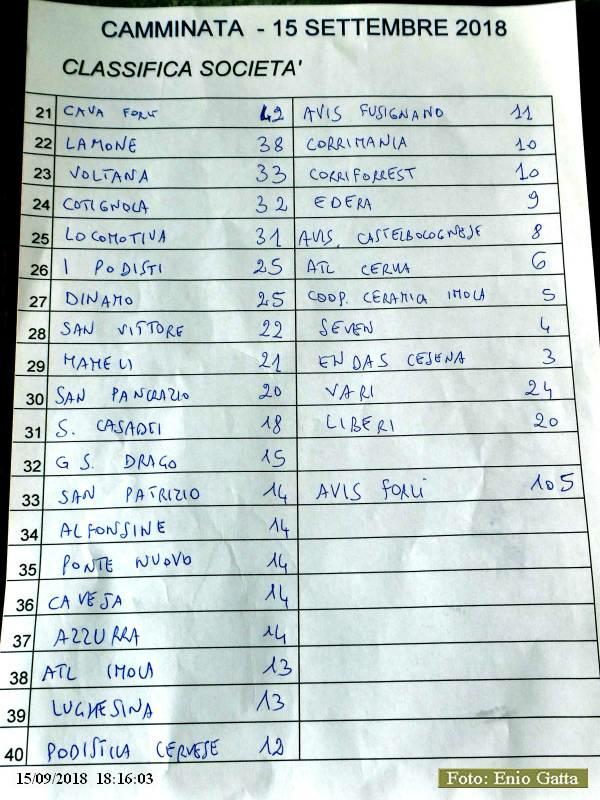 CAMMINATA - 15 SETTEMBRE 2018
CLASSIFICA SOCIETA'
21 CAVA FORLI 42 AVIS FUSIGNANO 11
22 LAMONE 38 CORRIMANIA 10
23 VOLTANA 33 CORRIFORREST 10
24 COTIGNOLA 32 EDERA 9
25 LOCOMOTIVA 31 AVIS. CASTELBOLOGNESE 8
26 I PODISTI 25 ATL CERVIA 6
27 DINAMO 25 COOP. CERAMIA IMOLA 5
28 SAN VITTORE 22 SEVEN 4
29 MAMELI 21 ENDAS CESENA 3
30 SAN PANCRAZIO 20 VARI 24
31 S. CASADEI 18 LIBERI 20
32 G S. DRAGO 15
33 SAN PATRIZIO 14 AVIS FORLI 105
34 ALFONSINE 14
35 PONTE NUOVO 14
36 CAVEJA 14
37 AZZURRA 14
38 ATL IMOLA 13
39 LUGHESINA 13
40 PODISTICA CERVESE 12
15/09/2018 18:16:03
Foto: Enio Gatta